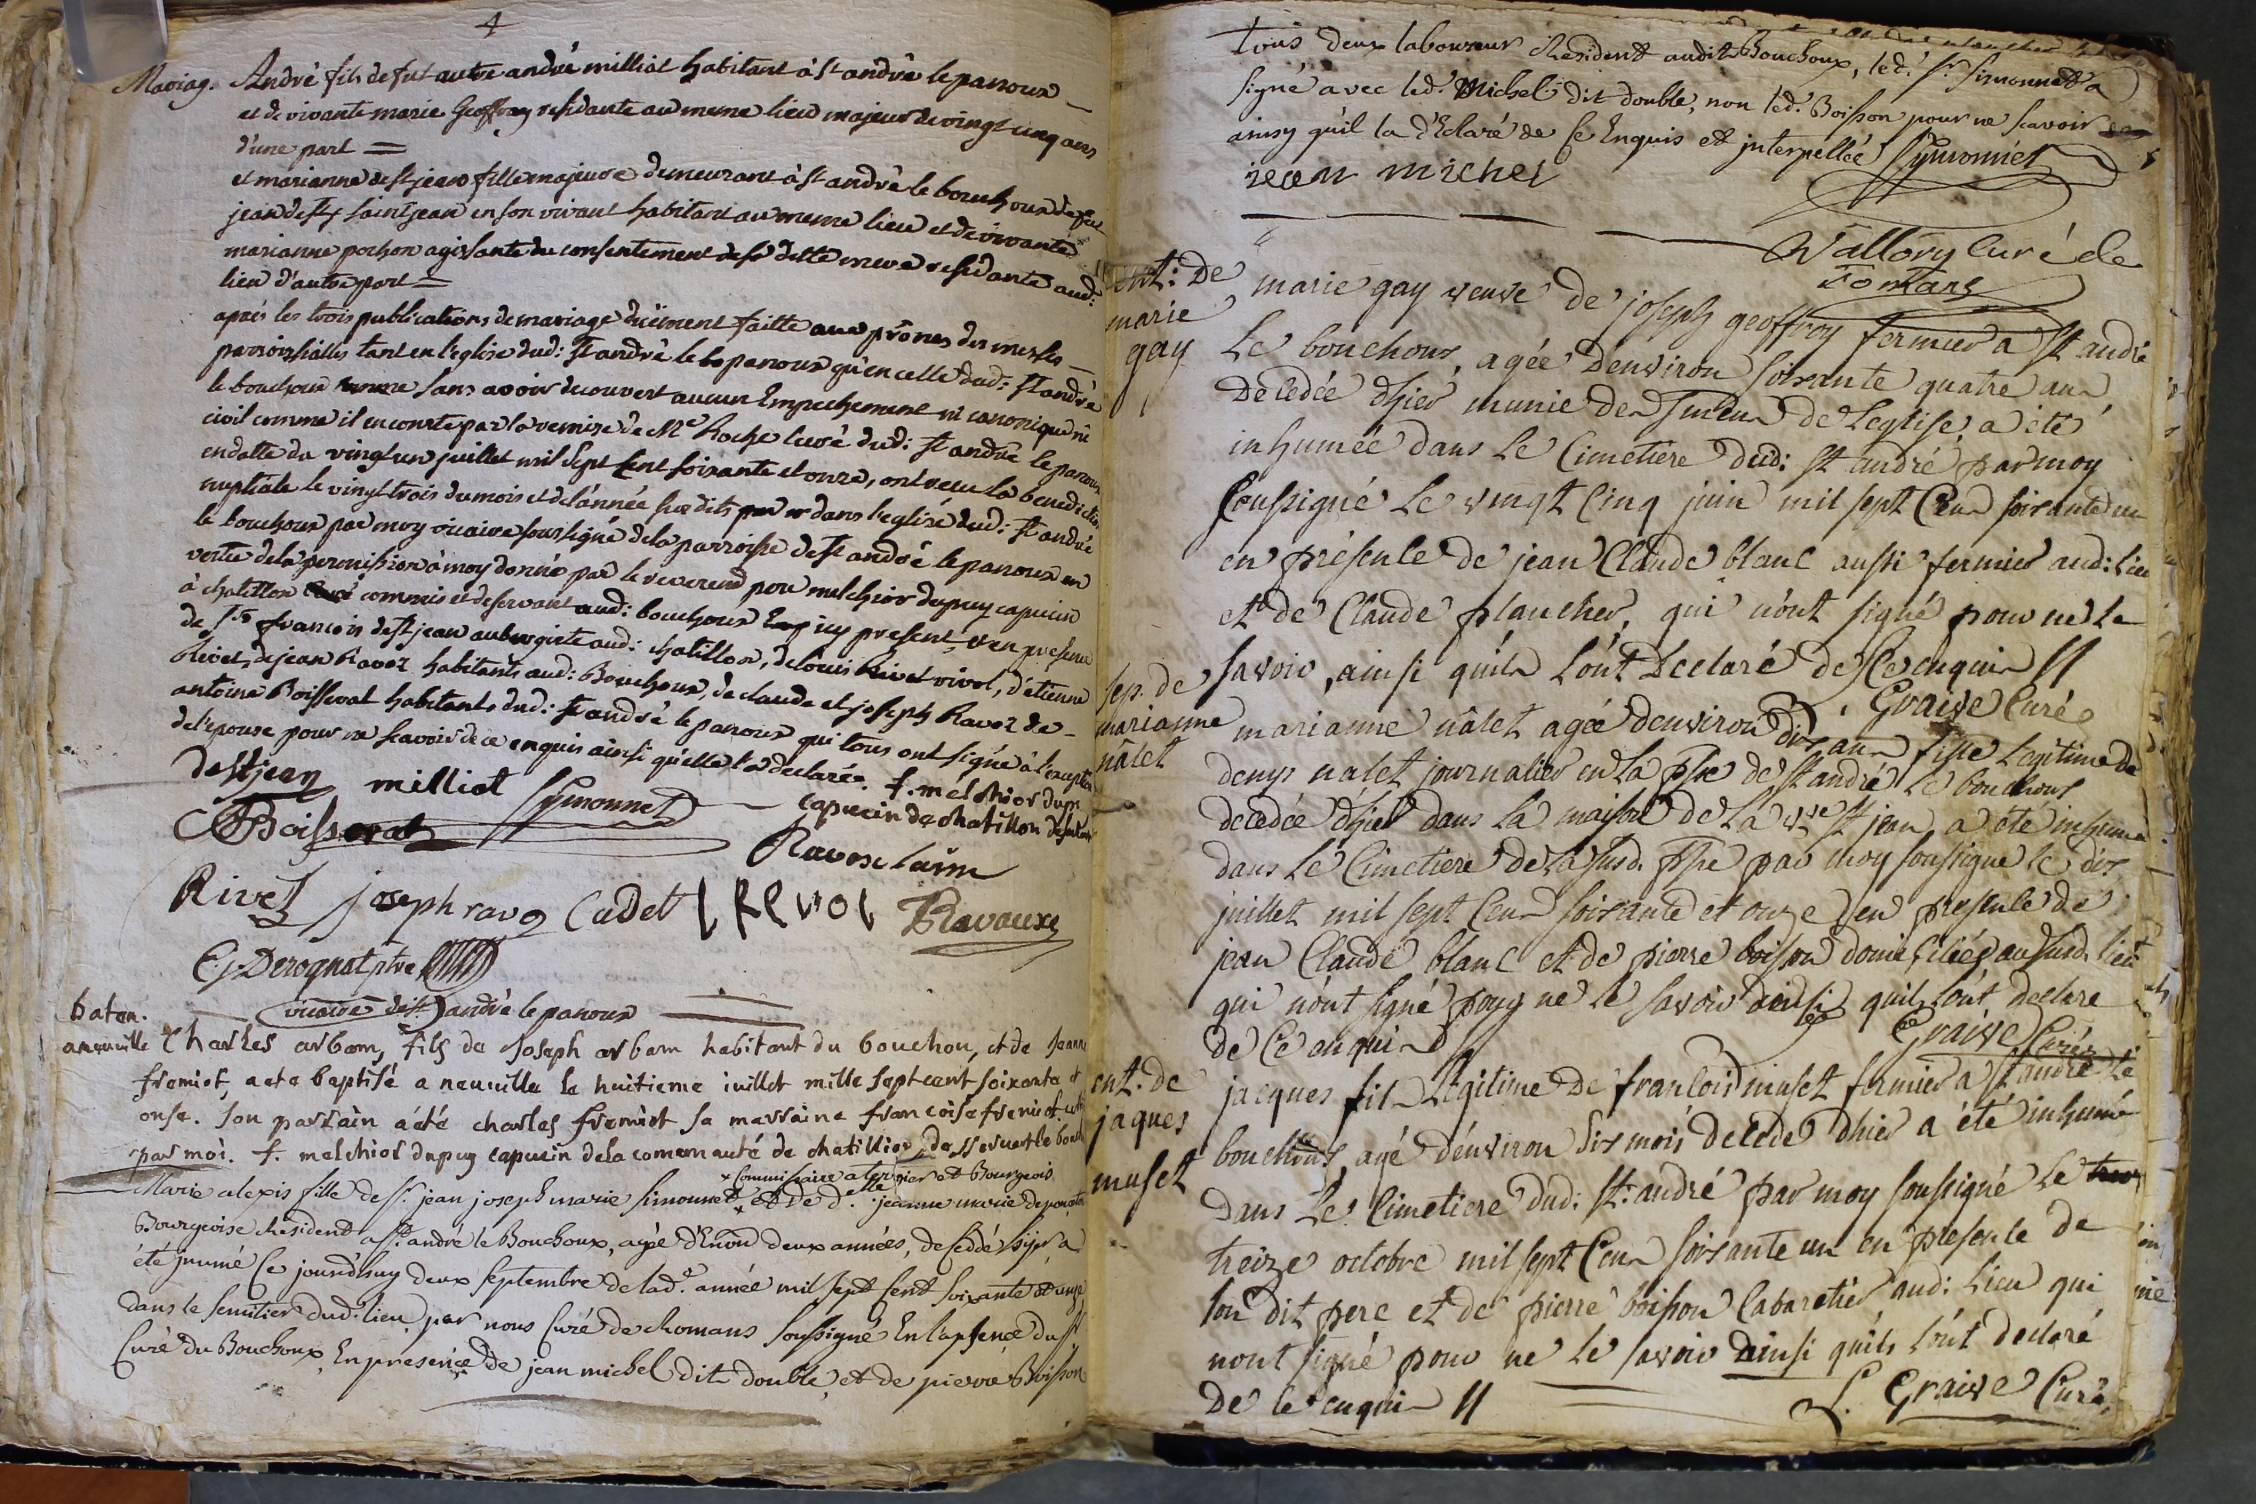 4
Mariag. André fils de fut autre andré milliat habitant à st andré le panoux
et de vivante marie Geoffray residante au meme lieu majeur de vingt cinq ans
d'une part =
et marianne de st jean fille majeure demeurant à st andré le bouchoux de fut
jean de st jean en son vivant habitant au meme lieu et de vivante
marianne pochon agissante du consentement de sa ditte mere residante aud:
lieu d'autre part =
aprés les trois publications de mariage duëment faitte aux prônes des messes
parroissialles tant en l'eglise dud: st andré le panoux qu'en celle dud: st andré
le bouchoux sans avoir decouvert aucun Empechement ni canonique ni
civil comme il en conste par la remise de Mre Roche curé dud: st andré le panoux
en datte du vingt un juillet mil sept cent soixante et onze, ont recu la benediction
nuptiale le vingt trois du mois et de l'année sus dits dans l'eglise dud: st andré
le bouchoux par moy vicaire soussigné de la parroisse de st andré le panoux en
vertu de la permission à moy donné par le reverend pere melchior dupuy capucin
à chatillon commis et deservant aud: bouchoux icy present, & en presence
de Sr francois de st jean aubergiste aud: chatillon, de louis rivol, d'etienne
Rivet, de jean Ravoz habitants aud: Bouchoux, de claude et joseph Ravoz de
antoine Boisserat habitants dud: st andré le panoux qui tous ont signé à l'exception
de l'epouse pour ne scavoir de ce enquis ainsi qu'elle l'a declaré.
destjean milliat Symonnet f. melchior dupuy
capucin de chatillon deservant
Boisserat
Ravox laîné
Rivet joseph ravo Cadet Ravaux
E. Derognat ptre
vicaire de st andré le panoux
batem.
aneuville Charles arbam, fils de Joseph arbam habitant du bouchou, et de Jeanne
fremiot, a ete baptisé a neuville le huitieme iuillet mille sept cent soixante et
onse. son parrain a été charles fremiot sa marraine francoise fremiot
par moi. f. melchior dupuy capucin de la comemauté de chatillion desservant le bouch
× Commissaire a terrier et Bourgeois
Marie alexis fille de sr. jean joseph marie simonnet × et de dlle. jeanne marie
Bourgeoise Résident a st. andré le Bouchoux, agée d'Environ deux années, desédé hÿer a
été jnumé Ce jourdhuy deux septembre de lad.e année mil sept sent soixante et onze
dans le semitier dud. lieu, par nous Curé de Romans soussigné En l'apsence du sr
Curé du Bouchoux, En presence de jean michel dit double, et de pierre Boisson
tous deux laboureur Résident audit Bouchoux, led.t sr. simonnet a
signé avec led.t Michel dit double, non led.t Boisson pour ne scavoir
ainsy qu'il la d'Eclaré de Ce Enquis et jnterpellée Symonnet
iean michel
Vallory Curé de
Romans
ent: De
marie
gay
marie gay veuve de joseph geoffroy fermier a st andré
Le bouchoux, agée d'environ soixante quatre ans
Decedée d'hier munie des de L'eglise a été
inhumée dans Le Cimetiere dud: st andré par moy
soussigné Le vingt Cinq juin mil sept Cens soixante un
en présence de jean Claude blanc aussi fermier aud: Lieu
et de Claude plancher, qui n'ont signé pour ne Le
savoir, ainsi qu'ils l'ont Déclaré de Ce enquis //
Graive Curé
sep. de
marianne
nâlet
marianne nâlet agée d'environ dix ans fille Legitime de
denys nalet journalier en La psse de st andré Le bouchous
decedée d'hier dans La maison de La vve st jean a été inhumé
dans Le Cimetiere de La susd. psse par moy soussigné le dix
juillet mil sept Cens soixante et onze en presence de
jean Claude blanc et de pierre boisson domiciliés au susd. lieu
qui n'ont signé pour ne Le savoir ainsi qu'ils l'ont declaré
de Ce enquis
Graive Curé
ent: de
jaques
muset
jacques fils Legitime de francois muset fermier a st andré Le
bouchous, agé d'environ six mois decede d'hier a été inhumé
dans Le Cimetiere dud: st. andré par moy soussigné Le
treize octobre mil sept Cens soixante un en presence de
son dit pere et de pierre boisson Cabaretier aud: Lieu qui
n'ont signé pour ne Le savoir ainsi qu'ils l'ont declaré
De Ce enquis //
Graive Curé